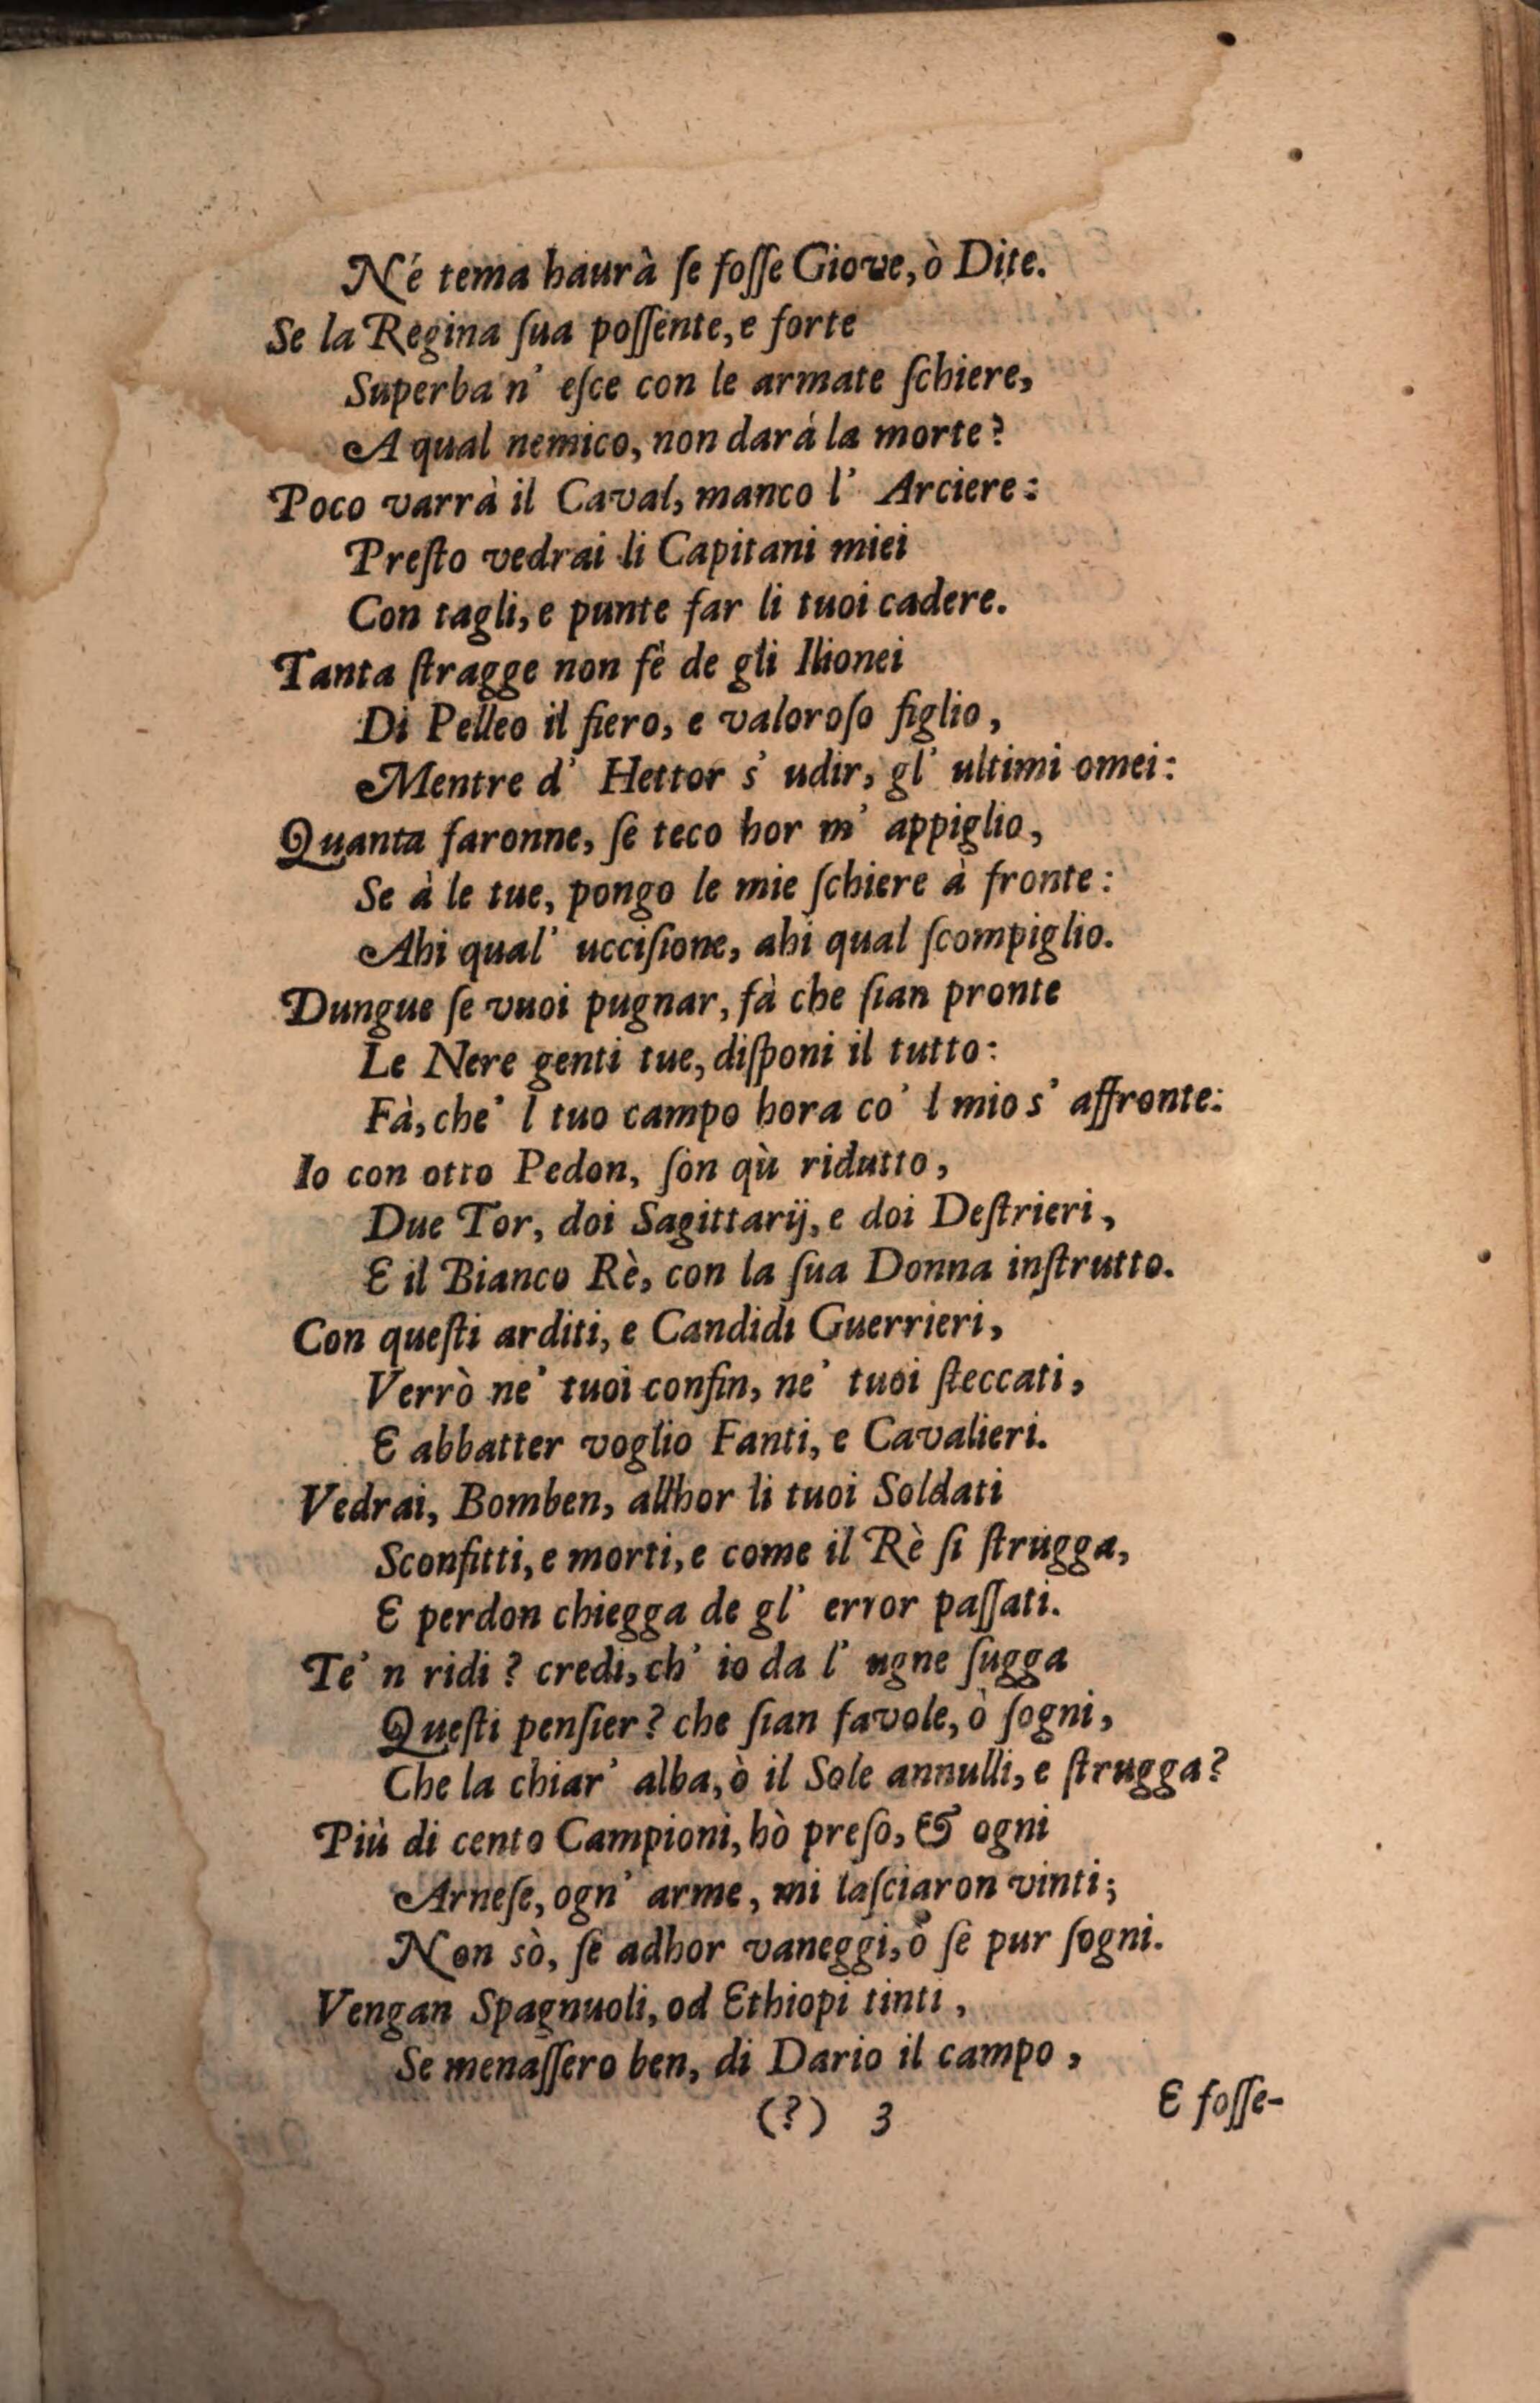 Né tema haurà ſe foſſe Giove, ò Dite.
Se la Regina ſua poſſente, e forte
Superba n' eſce con le armate ſchiere,
A qual nemico, non dará la morte?
Poco varrà il Caval, manco l' Arciere:
Preſto vedrai li Capitani miei
Con tagli, e punte far li tuoi cadere.
Tanta ſtragge non fè de gli Ilionei
Di Pelleo il fiero, e valoroſo figlio,
Mentre d' Hettor s' udir, gl' ultimi omei:
Quanta faronne, ſe teco hor m' appiglio,
Se à le tue, pongo le mie ſchiere à fronte:
Ahi qual' ucciſione, ahi qual ſcompiglio.
Dungue ſe vuoi pugnar, fà che ſian pronte
Le Nere genti tue, diſponi il tutto:
Fà, che' l tuo campo hora co' l mio s' affronte:
Io con otto Pedon, ſon qù ridutto,
Due Tor, doi Sagittarij, e doi Deſtrieri,
E il Bianco Rè, con la ſua Donna inſtrutto.
Con queſti arditi, e Candidi Guerrieri,
Verrò ne' tuoi confin, ne' tuoi ſteccati,
E abbatter voglio Fanti, e Cavalieri.
Vedrai, Bomben, allhor li tuoi Soldati
Sconfitti, e morti, e come il Rè ſi ſtrugga,
E perdon chiegga de gl' error paſſati.
Te' n ridi? credi, ch' io da l' ugne ſugga
Queſti penſier? che ſian favole, ò ſogni,
Che la chiar' alba, ò il Sole annulli, e ſtrugga?
Più di cento Campioni, hò preſo, & ogni
Arneſe, ogn' arme, mi laſciaron vinti;
Non sò, ſe adhor vaneggi, ò ſe pur ſogni.
Vengan Spagnuoli, od Ethiopi tinti,
Se menaſſero ben, di Dario il campo,
(?) 3
E foſſe-